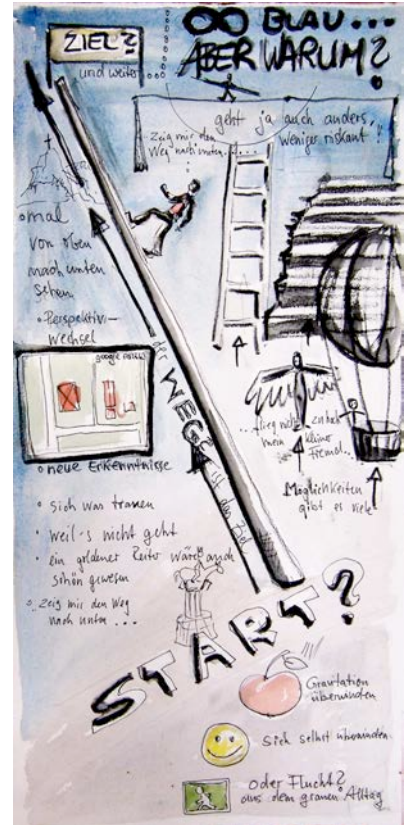 ∞ BLAU...
ABER WARUM?
ZIEL?
und weiter...
geht ja auch anders,
weniger riskant!
Zeig mir den
Weg nach unten......
mal
von oben
nach unten
sehen
Perspektiv-
wechsel
google
der WEG ist das Ziel
...flieg nicht zu hoch
mein kleiner
Freund...
Möglichkeiten
gibt es viele
neue Erkenntnisse
sich was trauen
weil's nicht geht
ein goldener Reiter wäre auch
schön gewesen
Zeig mir den Weg
nach unten...
START?
Gravitation
überwinden
sich selbst überwinden
oder Flucht?
aus dem grauen Alltag